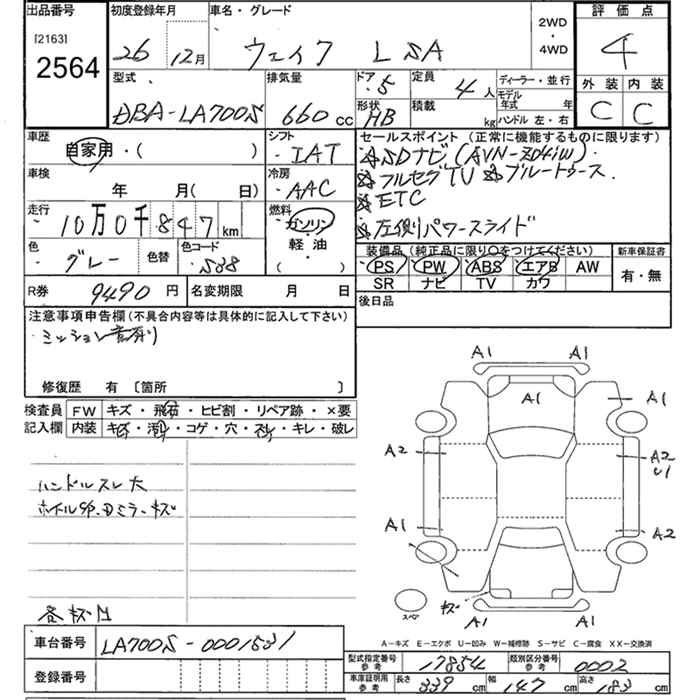 出品番号 初度登録年月 車名・グレード 2WD・4WD 評価点
[2163]
2564 26 12月 ウェイク L SA 4
型式 排気量 ドア 5 定員 4人 ディーラー・並行 外装 内装
DBA-LA700S 660cc 形状 HB 積載 kg モデル年式 年 ハンドル 左・右 C C
車歴 シフト セールスポイント (正常に機能するものに限ります)
自家用・( ) IAT ☆SDナビ(AVN-ZD4iW).
車検 冷房 ☆フルセグTV ☆ブルートゥース.
年 月( 日) AAC ☆ETC
走行 燃料 ☆左側パワースライド
10万0千847km ガソリン・軽油・( )
色 色替 色コード 装備品 (純正品に限り○をつけてください) 新車保証書
グレー S38 PS PW ABS エアB AW 有・無
SR ナビ TV カワ
R券 9490円 名変期限 月 日 後日品
注意事項申告欄(不具合内容等は具体的に記入して下さい)
ミッション 異音有り
修復歴 有 〔箇所 〕
検査員 FW キズ・飛石・ヒビ割・リペア跡・×要
記入欄 内装 キズ・汚れ・コゲ・穴・スレ・キレ・破レ
A1 A1
A1 A1
A2 A2
U1
A1 A2
ハンドルスレ大
ホイル キズ Dミラーキズ
キズ
スペア
A1 A1
A-キズ E-エクボ U-凹み W-補修跡 S-サビ C-腐食 XX-交換済
車台番号 LA700S-0001531
型式指定番号 参考 17854 類別区分番号 参考 0002
登録番号
車庫証明用 参考 長さ 339cm 幅 147cm 高さ 183cm